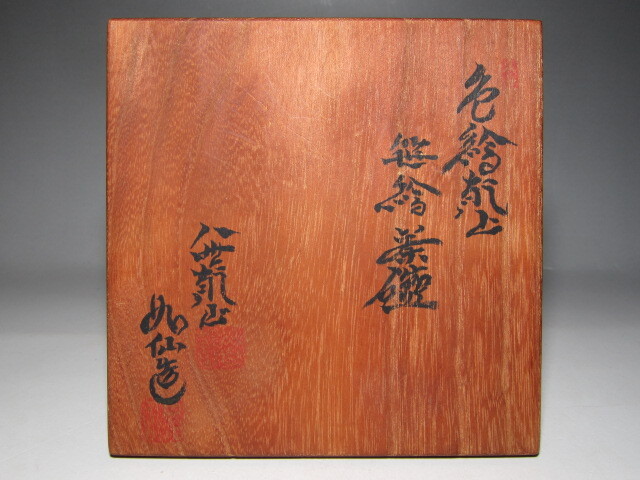 色繪乾山
笹繪茶碗
八世乾山
如仙造